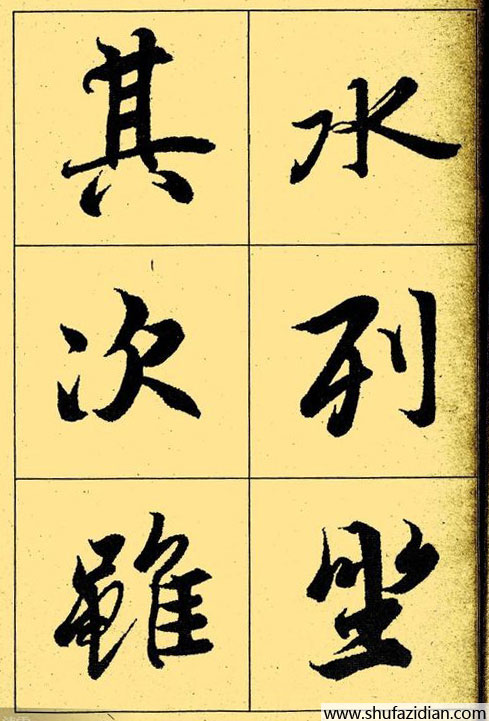 水列坐
其次雖
www.shufazidian.com